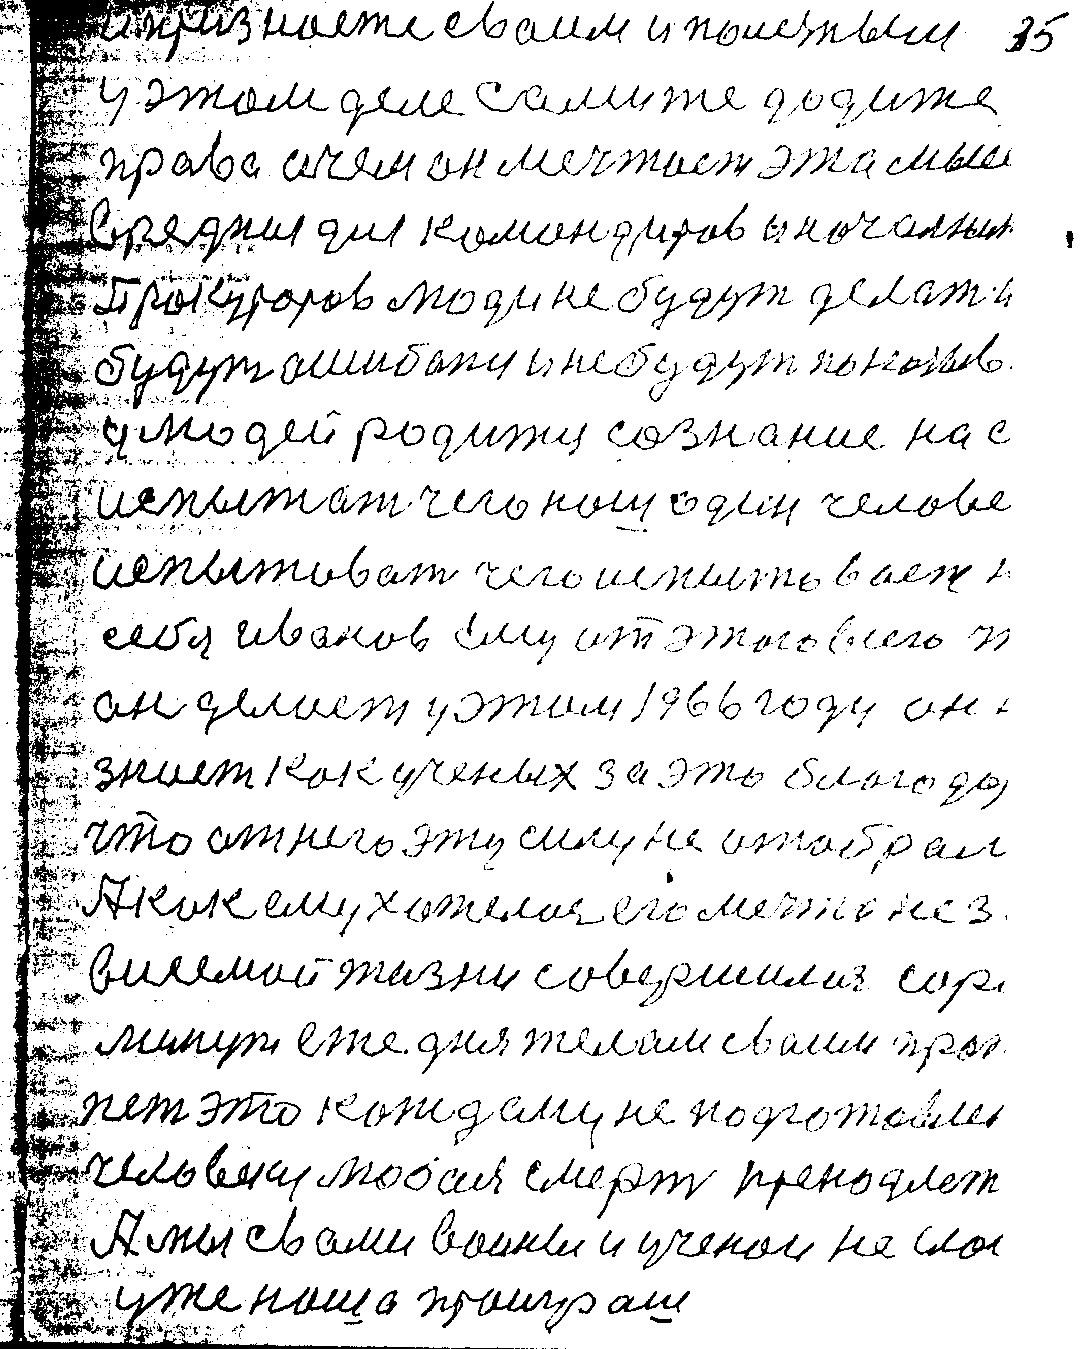 и признаете сваим и почетным 35
у этом деле самиже додиже
права очем он мечтает эта мысе
вредныя для командиров и начальник
Прокуроров люди не будут делат и
будут ошибаки и не будут показыв
у людей родижц сознание на с
испытат чего наш один челове
испытоват чего испытоваеж н
себя иванов ему от этого всего чт
он делает у этом 1966 году он н
знает как ученых за это благода
что от него эту силу не отобрал
А как ему хотелоя его мечта не з
в исемой жизни совершилоя сор
минут еже дня желаем сваим прот
пет это каждаму не подготовлен
человеку любоя смерт пренодлеж
А мы с вами воины и ученои не смог
уже наша проиграш